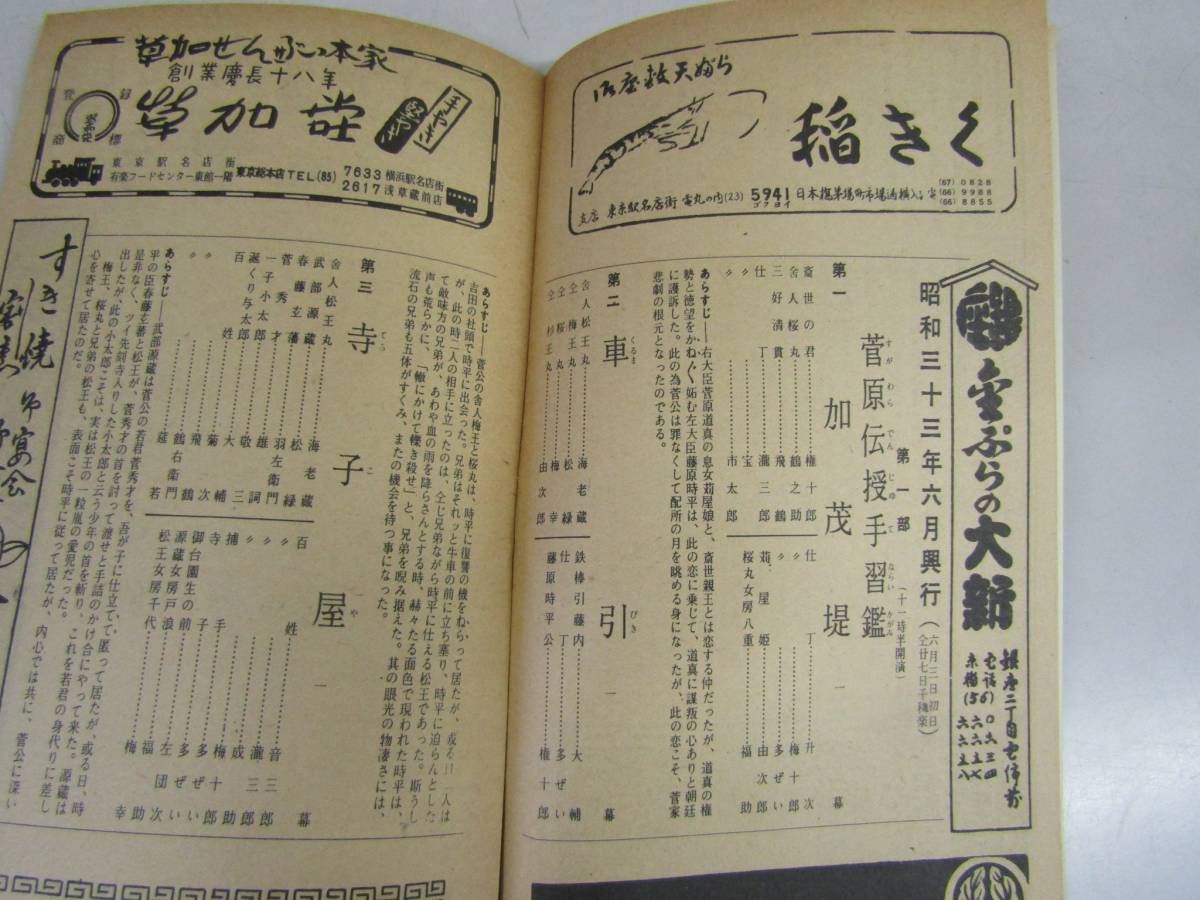 御座敷天婦ら
稲きく
(67) 0828
(66) 9988
(66) 8855
支店 東京駅名店街 電丸の内(23) 5941 日本橋茅場町市場通横入
ゴクヨイ
金ぷらの大新
銀座二丁目
昭和三十三年六月興行
(六月三日初日
仝廿七日千穐楽)
第一部
(十一時半開演)
菅原伝授手習鑑
すがわらでんじゅてならいかがみ
第一 加茂堤 一幕
斎世の君………権十郎
舎人桜丸………鶴之助
三好清貫………飛鶴
仕丁………瀧三郎
〃………宝
〃………市太郎
仕丁………升次
〃………梅十郎
〃………多ぜい
苅屋姫………由次郎
桜丸女房八重………福助
あらすじ――右大臣菅原道真の息女苅屋娘と、斎世親王とは恋する仲だったが、道真の権
勢と徳望をかねがね妬む左大臣藤原時平は、此の恋に乗じて、道真に謀叛の心ありと朝廷
に讒訴した。此の為菅公は罪なくして配所の月を眺める身になったが、此の恋こそ、菅家
悲劇の根元となったのである。
第二 車引 一幕
くるまびき
舎人松王丸………海老蔵
仝梅王丸………松緑
仝桜丸………梅幸
仝杉王丸………由次郎
鉄棒引藤内………大輔
仕丁………多ぜい
藤原時平公………権十郎
あらすじ――菅公の舎人梅王と桜丸は、時平に復讐の機をねらって居たが、或る日二人は
吉田の社頭で時平に出会った。兄弟はそれッと牛車の前に立ち塞り、時平に迫らんとした
が、此の時二人の相手に立ったのは、仝じ兄弟ながら時平に仕える松王であった。斯うし
て敵味方の兄弟が、あわや血の雨を降らさんとする時、赫々たる面色で現われた時平は、
声も荒らかに、「轍にかけて轢き殺せ」と、兄弟を睨み据えた。其の眼光の物凄さには、
流石の兄弟も五体がすくみ、またの機会を待つ事になった。
草加せんべい本家
創業慶長十八年
登録商標
草加堂
手やき
東京駅名店街
有楽フードセンター東館一階
東京総本店 TEL.(85) 7633 2617
横浜駅名店街
浅草蔵前店
第三 寺子屋 一幕
てらこや
舎人松王丸………海老蔵
武部源蔵………松緑
春藤玄蕃………羽左衛門
菅秀才………詞
一子小太郎………雄
涎くり与太郎………敬三
百姓………大輔
〃………菊次
〃………飛鶴
〃………鶴右衛門
〃………薙若
百姓………音三郎
〃………瀧三郎
〃………成助
捕手………梅十郎
寺子………多ぜい
御台園生の前………多ぜい
源蔵女房戸浪………左団次
松王女房千代………福助
梅幸
あらすじ――武部源蔵は菅公の若君菅秀才を、吾が子に仕立てて匿って居たが、或る日、時
平の臣春藤玄蕃と松王が、菅秀才の首を討って渡せと手詰のかけ合にやって来た。源蔵は
是非なく、ツイ先刻寺入りした小太郎と云う少年の首を斬り、これを若君の身代りに差し
出したが、此の小太郎こそは、実は松王の一粒胤の愛児だった。
梅王、桜丸と兄弟の松王も、表面こそ時平に従って居たが、内心では共に、菅公に深い
心を寄せて居たのだ。
すき焼
宴会